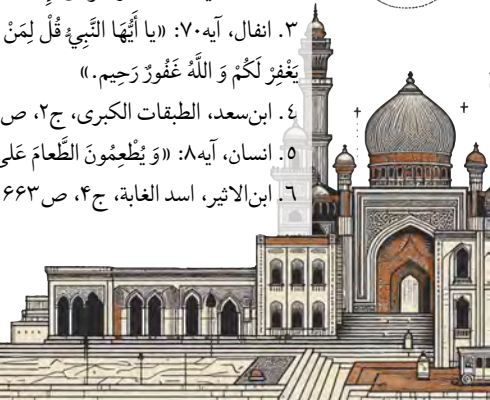 ۳. انفال، آیه۷۰: «یا أَیُّهَا النَّبِيُّ قُلْ لِمَنْ
یَغْفِرْ لَکُمْ وَ اللَّهُ غَفُورٌ رَحِیم.»
٤. ابن‌سعد، الطبقات الکبری، ج۲، ص
٥. انسان، آیه۸: «وَ یُطْعِمُونَ الطَّعامَ عَلی
٦. ابن‌الاثیر، اسد الغابة، ج۴، ص۶۶۳